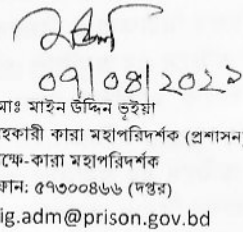 ০৭/০৪/২০২১
মাঃ মাইন উদ্দিন ভূইয়া
হকারী কারা মহাপরিদর্শক (প্রশাসন)
ক্ষে-কারা মহাপরিদর্শক
কান: ৫৭৩০০৪৬৬ (দপ্তর)
ig.adm@prison.gov.bd